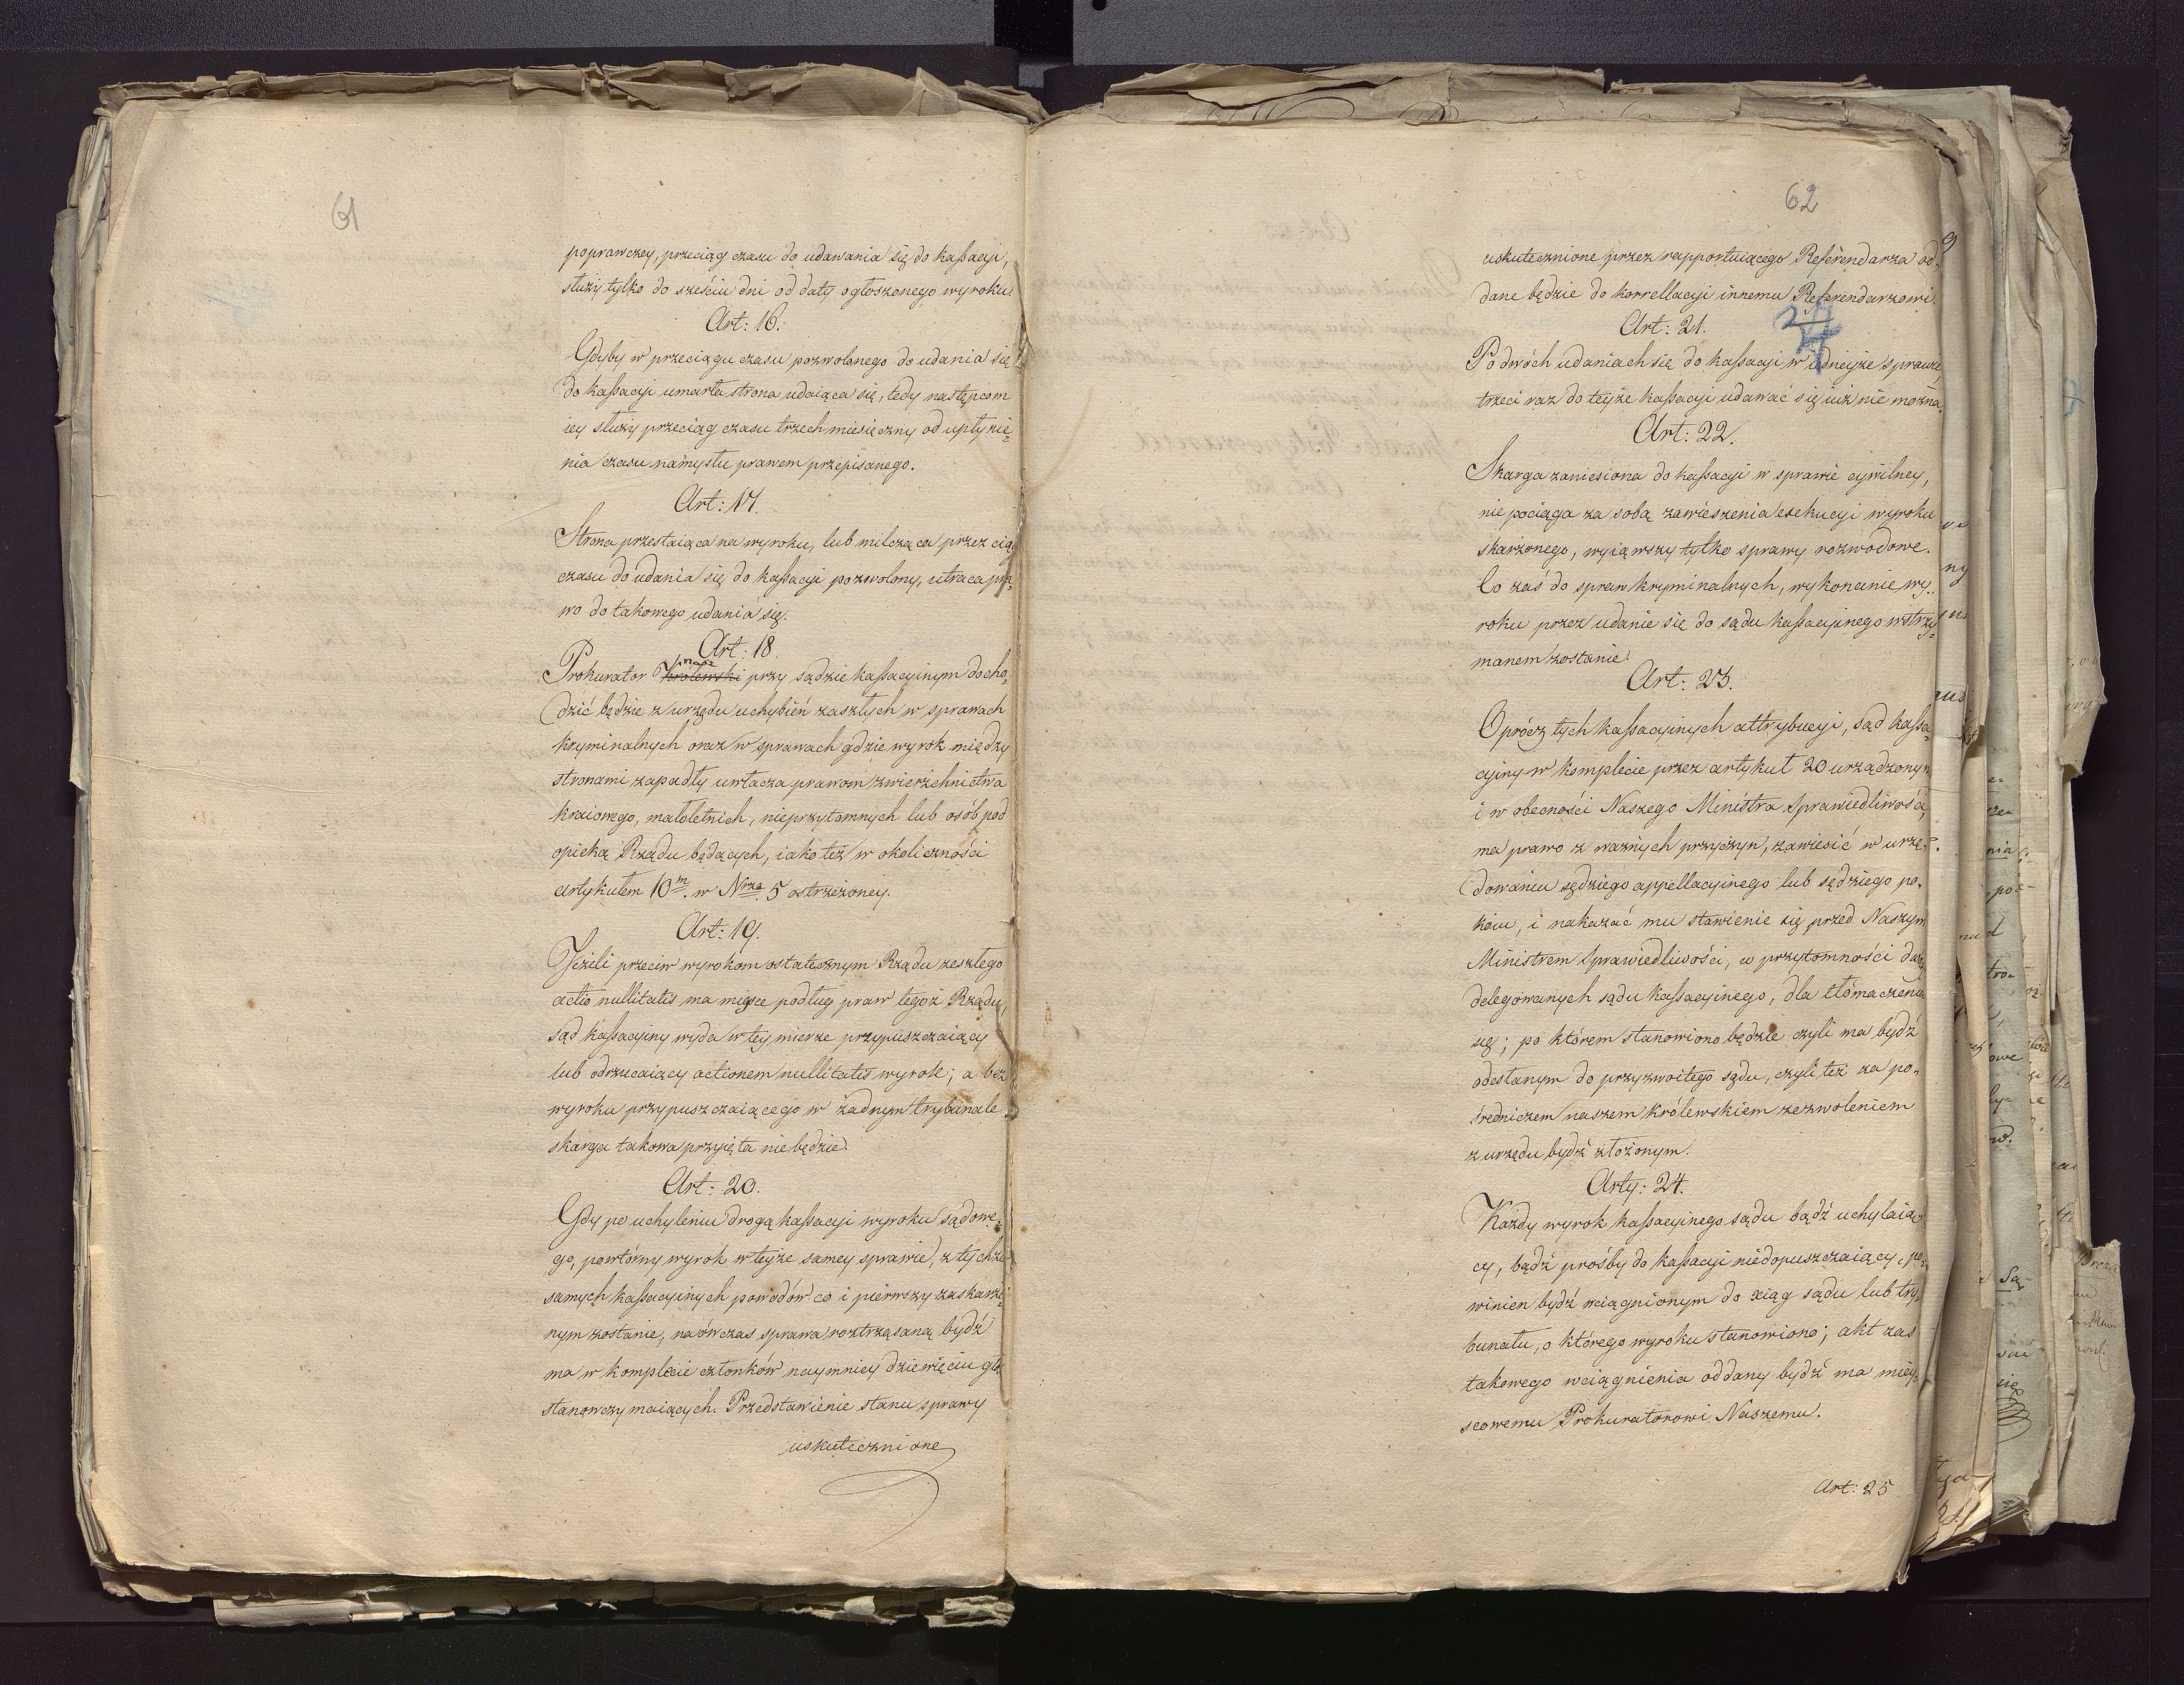 61
poprawczey, przeciąg czasu do udawania się do kassacyi,
służy tylko do sześciu dni od daty ogłoszonego wyroku.
Art: 16.
Gdyby w przeciągu czasu pozwolonego do udania się
do kassacyi umarła strona udaiąca się, tedy następcom
iey służy przeciąg czasu trzech miesięczny od upłynie=
nia czasu namysłu prawem przepisanego.
Art: 17.
Strona przestaiąca na wyroku, lub milcząca przez ciąg
czasu do udania się do kassacyi pozwolony, utraca pra=
wo do takowego udania się.
Art: 18
Prokurator królewski przy sądzie kassacyinym docho=
dzić będzie z urzędu uchybień zaszłych w sprawach
kryminalnych oraz w sprawach gdzie wyrok między
stronami zapadły uwłacza prawom zwierzchnictwa
kraiowego, małoletnich, nieprzytomnych lub osób pod
opieką Rządu będących, iako też w okoliczności
artykułem 10m. w Nrze. 5 ostrzeżoney.
Art: 19.
Jeżeli przeciw wyrokom ostatecznym Rządu zeszłego
actio nullitatis ma miejsce podług praw tegoż Rządu,
sąd kassacyiny wyda w tey mierze przypuszczaiący
lub odrzucaiący actionem nullitatis wyrok; a bez
wyroku przypuszczaiącego w żadnym trybunale
skarga takowa przyięta nie będzie.
Art: 20.
Gdy po uchyleniu drogą kassacyi wyroku sądowe=
go, powtórny wyrok w teyże samey sprawie, z tychże
samych kassacyinych powodów co i pierwszy zaskarżo=
nym zostanie, naówczas sprawa roztrząsaną bydź
ma w komplecie członków naymniey dziewięciu głos
stanowczy maiących. Przedstawienie stanu sprawy
uskutecznione
62
uskutecznione przez rapportuiącego Referendarza od=
dane będzie do korrellacyi innemu Referendarzowi.
Art: 21.
Po dwóch udaniach się do kassacyi w iedneyże sprawie,
trzeci raz do teyże kassacyi udawać się iuż nie można.
Art: 22.
Skarga zaniesiona do kassacyi w sprawie cywilney,
nie pociąga za sobą zawieszenia exekucyi wyroku
skarżonego, wyiąwszy tylko sprawy rozwodowe.
Co zaś do spraw kryminalnych, wykonanie wy=
roku przez udanie się do sądu kassacyinego wstrzy=
manem zostanie.
Art: 23.
Oprócz tych kassacyinych attrybucyi, sąd kassa=
cyiny w komplecie przez artykuł 20 urządzonym
i w obecności Naszego Ministra Sprawiedliwości,
ma prawo z ważnych przyczyn, zawiesić w urzę=
dowaniu sędziego appellacyinego lub sędziego po=
koiu, i nakazać mu stawienie się przed Naszym
Ministrem Sprawiedliwości, w przytomności dwóch
delegowanych sądu kassacyinego, dla tłómaczenia
się; po którem stanowiono będzie czyli ma bydź
odesłanym do przyzwoitego sądu, czyli też za po=
średniczem naszem królewskiem zezwoleniem
z urzędu bydź złożonym.
Arty: 24.
Każdy wyrok kassacyinego sądu bądź uchylaią=
cy, bądź prośby do kassacyi niedopuszczaiący, po=
winien bydź wciągnionym do xiąg sądu lub try=
bunału, o którego wyroku stanowiono; akt zaś
takowego wciągnienia oddany bydź ma miey=
scowemu Prokuratorowi Naszemu.
Art: 25